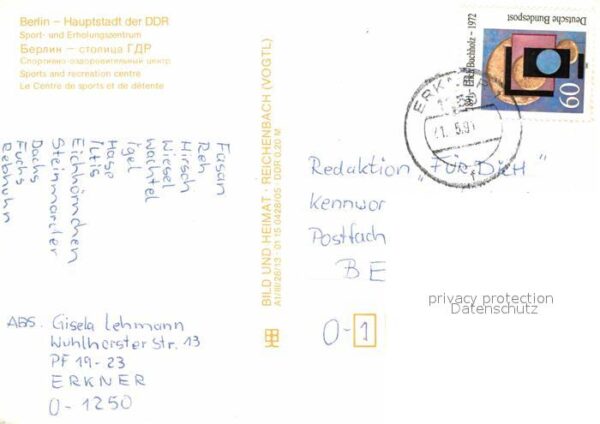 Berlin – Hauptstadt der DDR
Sport- und Erholungszentrum
Берлин — столица ГДР
Спортивно-оздоровительный центр
Sports and recreation centre
Le Centre de sports et de détente
Fasan
Reh
Hirsch
Wiesel
Wachtel
Igel
Hase
Iltis
Eichhörnchen
Steinmarder
Dachs
Fuchs
Rebhuhn
ABS. Gisela Lehmann
Wuhlhorster Str. 13
PF 19-23
ERKNER
O-1250
BILD UND HEIMAT · REICHENBACH (VOGTL)
A1/III/26/13 · 01 15 0428/05 DDR 0,20 M
Deutsche Bundespost
Erich Buchholz – 1972
60
ERKNER
Redaktion "FÜR DICH"
Kennwor
Postfach
BE
O-1
privacy protection
Datenschutz